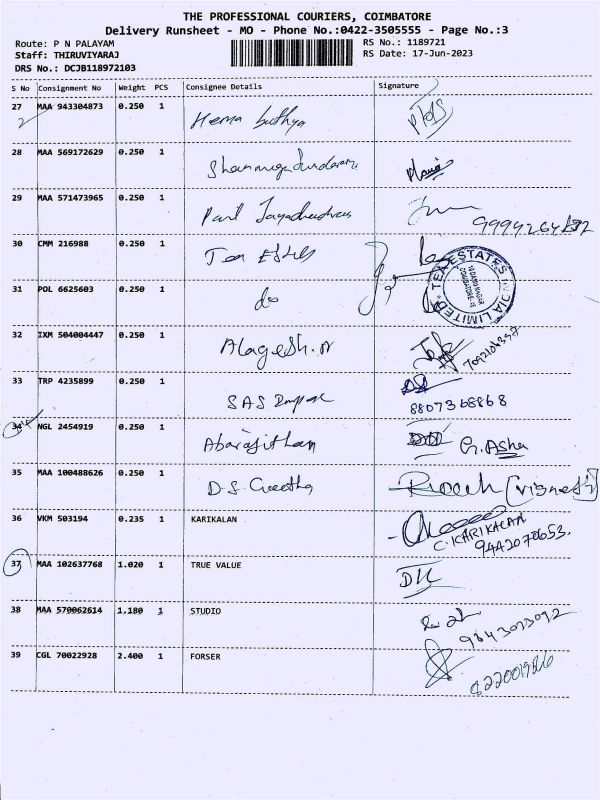 THE PROFESSIONAL COURIERS, COIMBATORE
Delivery Runsheet - MO - Phone No.:0422-3505555 - Page No.:3
Route: P N PALAYAM
Staff: THIRUVIYARAJ
DRS No.: DCJB118972103
RS No.: 1189721
RS Date: 17-Jun-2023
S No Consignment No Weight PCS Consignee Details Signature
27 MAA 943304873 0.250 1
Hema
28 MAA 569172629 0.250 1
Shanmugasundaram
29 MAA 571473965 0.250 1
Paul
30 CMM 216988 0.250 1
Tea Estates
TEA ESTATES INDIA LIMITED
31 POL 6625603 0.250 1
do
32 IXM 504004447 0.250 1
Alagesh.A
33 TRP 4235899 0.250 1
SAS
8807368868
34 NGL 2454919 0.250 1
Abarajitham G. Asha
35 MAA 100488626 0.250 1
D.S. Geetha
36 VKM 503194 0.235 1 KARIKALAN
C.KARIKALAN
9442070653.
37 MAA 102637768 1.020 1 TRUE VALUE
38 MAA 570062614 1.180 1 STUDIO
9843073092
39 CGL 70022928 2.400 1 FORSER